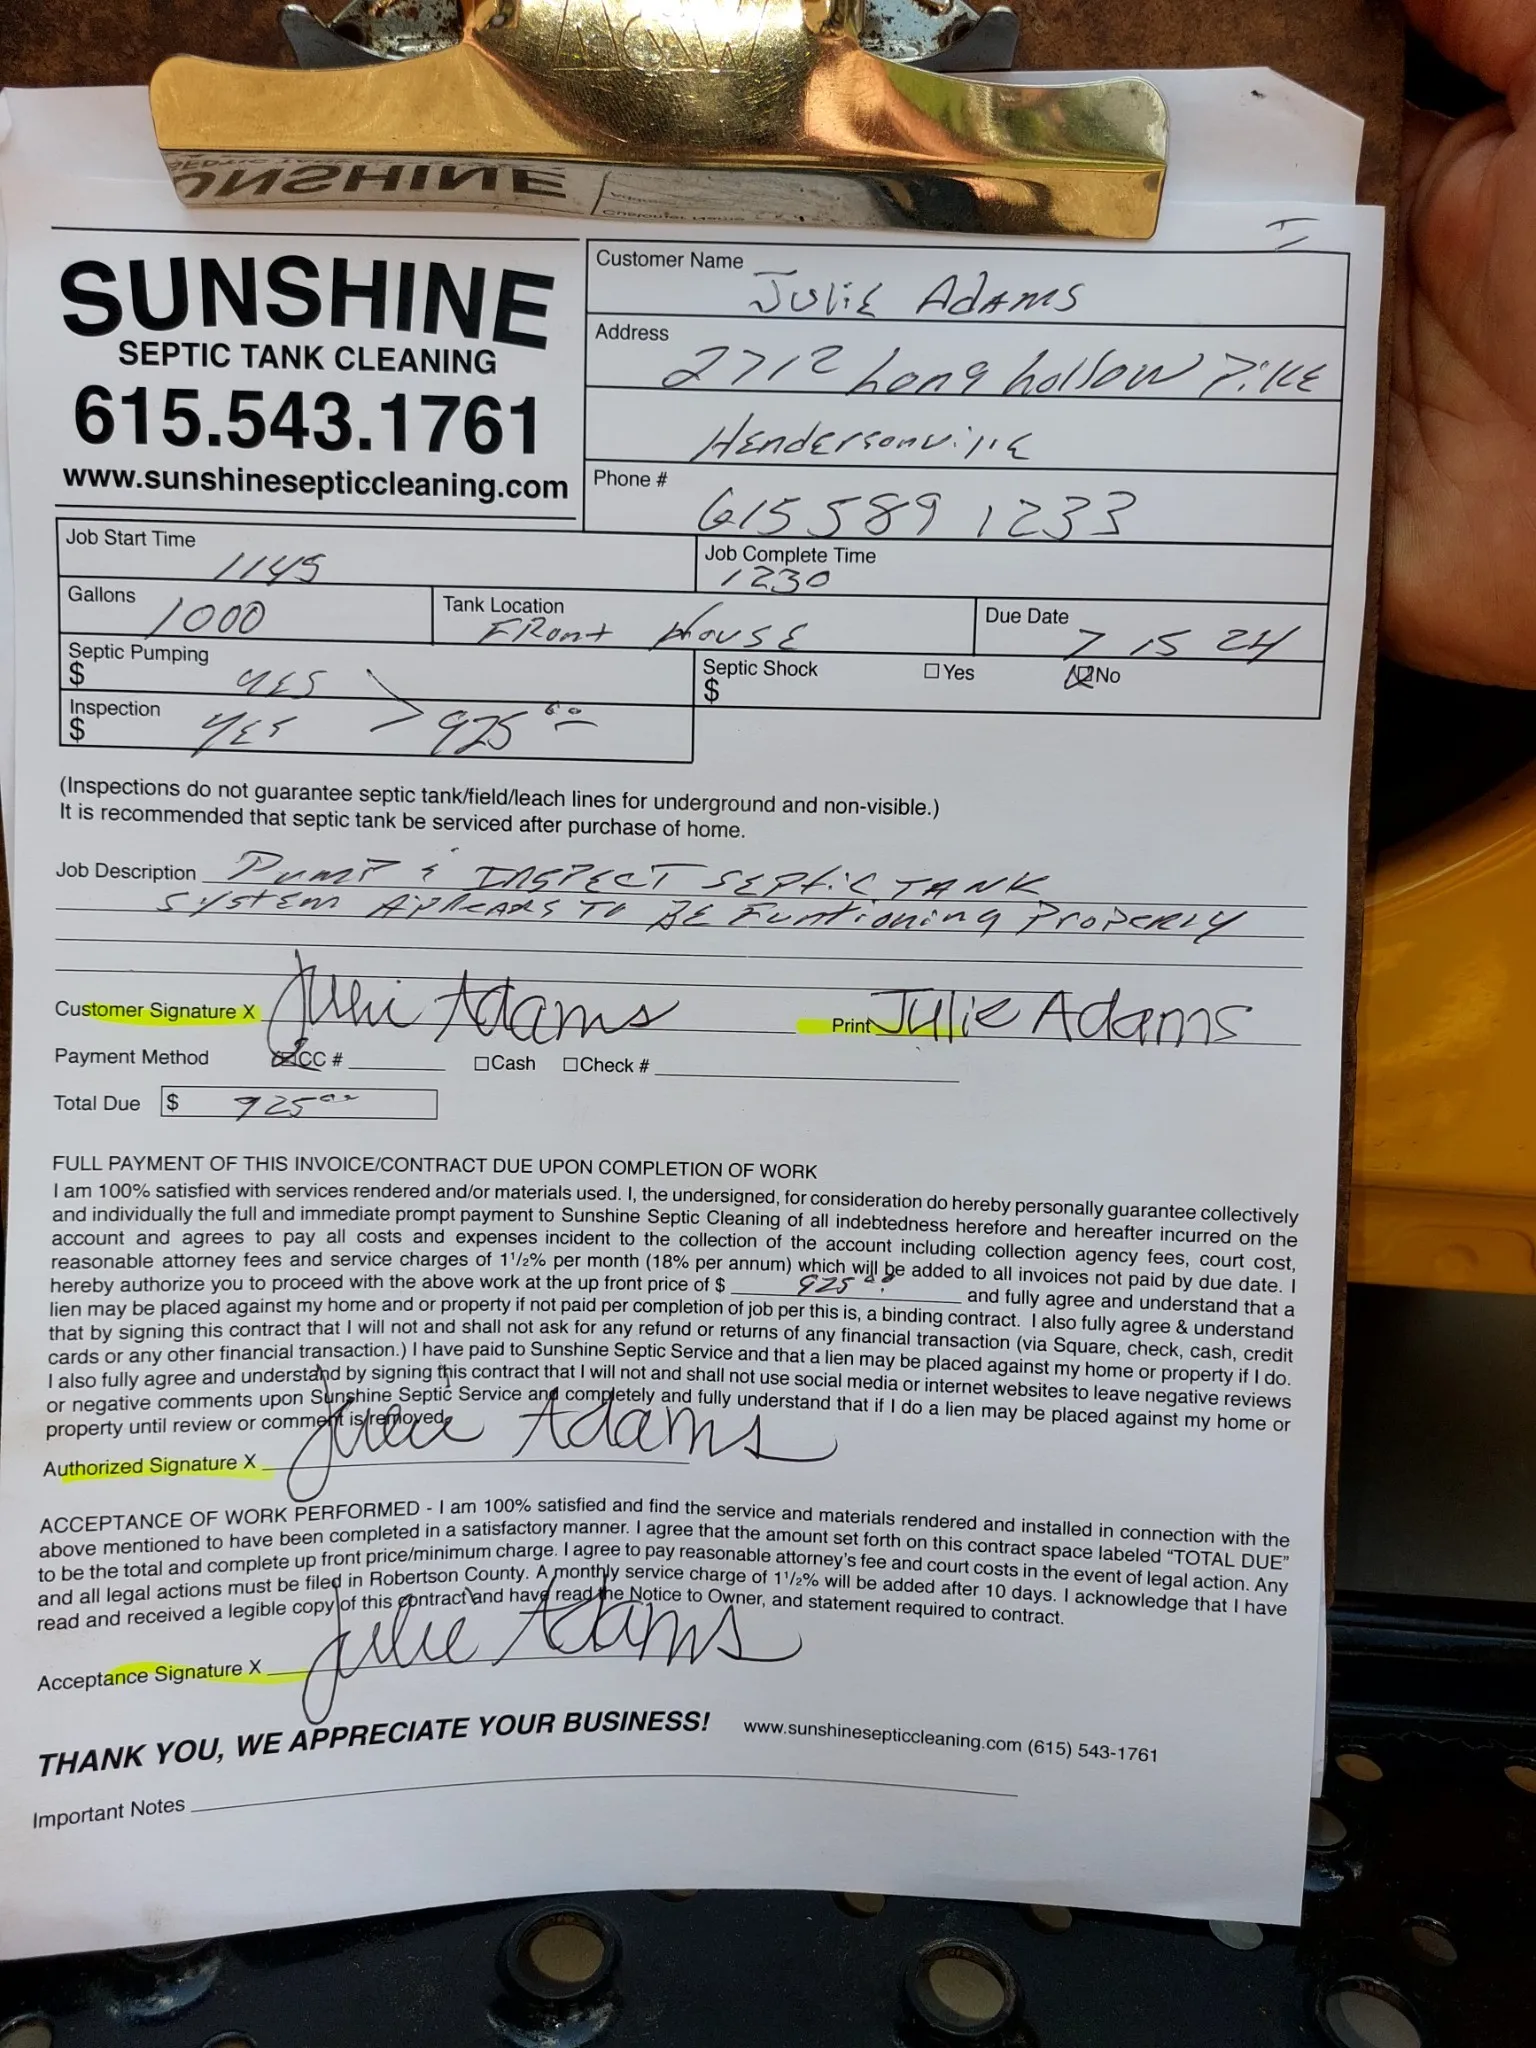 AGW
SUNSHINE
SEPTIC TANK CLEANING
615.543.1761
www.sunshinesepticcleaning.com
Customer Name Julie Adams
Address 2712 Long hollow Pike
Hendersonville
Phone # 615 589 1233
Job Start Time 1145
Job Complete Time 1230
Gallons 1000
Tank Location Front house
Due Date 7 15 24
Septic Pumping $ yes
Septic Shock $ ☐ Yes ☒ No
Inspection $ yes 925 00
(Inspections do not guarantee septic tank/field/leach lines for underground and non-visible.)
It is recommended that septic tank be serviced after purchase of home.
Job Description Pump & INSPECT SEPtic TANK
System Appears To BE Funtioning Properly
Customer Signature X Julie Adams Print Julie Adams
Payment Method ☒ CC # ☐ Cash ☐ Check #
Total Due $ 925 00
FULL PAYMENT OF THIS INVOICE/CONTRACT DUE UPON COMPLETION OF WORK
I am 100% satisfied with services rendered and/or materials used. I, the undersigned, for consideration do hereby personally guarantee collectively
and individually the full and immediate prompt payment to Sunshine Septic Cleaning of all indebtedness herefore and hereafter incurred on the
account and agrees to pay all costs and expenses incident to the collection of the account including collection agency fees, court cost,
reasonable attorney fees and service charges of 1 1/2% per month (18% per annum) which will be added to all invoices not paid by due date. I
hereby authorize you to proceed with the above work at the up front price of $ 925 00 and fully agree and understand that a
lien may be placed against my home and or property if not paid per completion of job per this is, a binding contract. I also fully agree & understand
that by signing this contract that I will not and shall not ask for any refund or returns of any financial transaction (via Square, check, cash, credit
cards or any other financial transaction.) I have paid to Sunshine Septic Service and that a lien may be placed against my home or property if I do.
I also fully agree and understand by signing this contract that I will not and shall not use social media or internet websites to leave negative reviews
or negative comments upon Sunshine Septic Service and completely and fully understand that if I do a lien may be placed against my home or
property until review or comment is removed.
Authorized Signature X Julie Adams
ACCEPTANCE OF WORK PERFORMED - I am 100% satisfied and find the service and materials rendered and installed in connection with the
above mentioned to have been completed in a satisfactory manner. I agree that the amount set forth on this contract space labeled "TOTAL DUE"
to be the total and complete up front price/minimum charge. I agree to pay reasonable attorney's fee and court costs in the event of legal action. Any
and all legal actions must be filed in Robertson County. A monthly service charge of 1 1/2% will be added after 10 days. I acknowledge that I have
read and received a legible copy of this contract and have read the Notice to Owner, and statement required to contract.
Acceptance Signature X Julie Adams
THANK YOU, WE APPRECIATE YOUR BUSINESS! www.sunshinesepticcleaning.com (615) 543-1761
Important Notes